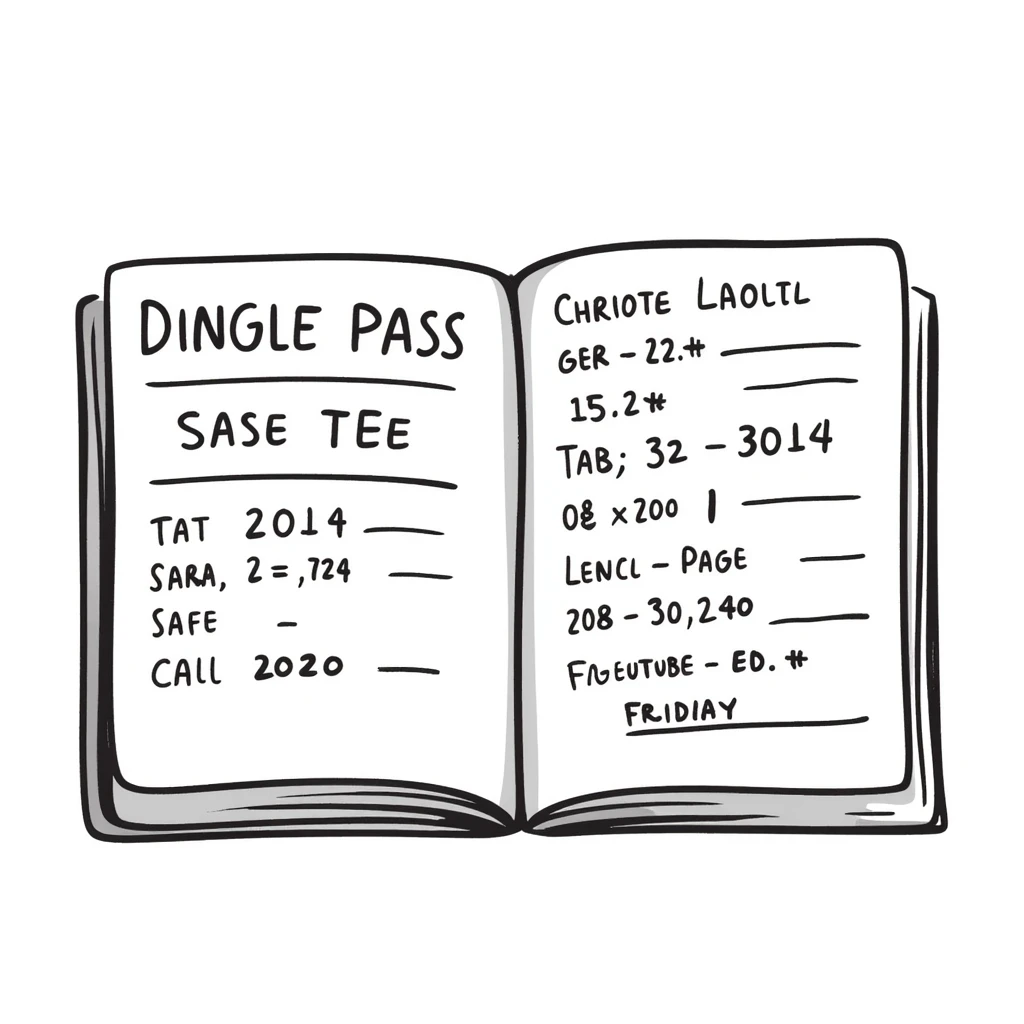 DINGLE PASS
SASE TEE
TAT 2014
SARA, 2=,724
SAFE –
CALL 2020
CHRIOTE LAOLTL
GER – 22.#
15.2#
TAB; 32 – 3014
08 x200 |
LENCL – PAGE
208 – 30,240
– ED. #
FRIDIAY